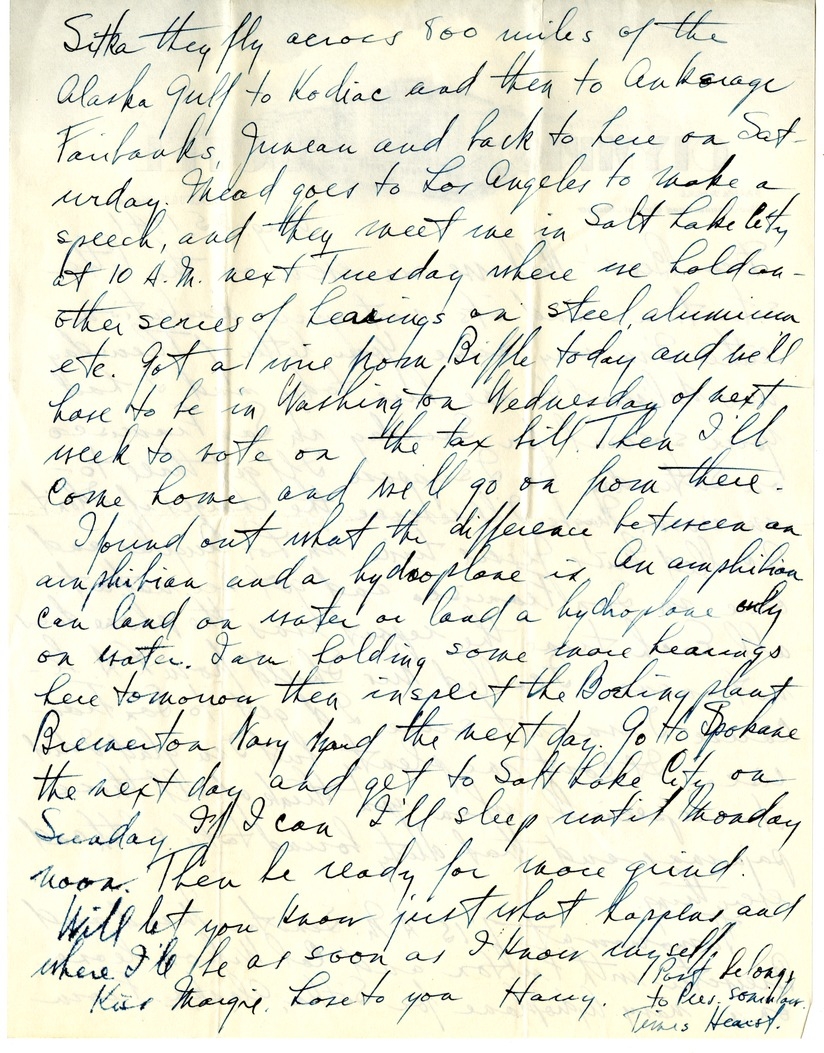 Sitka they fly across 800 miles of the
Alaska Gulf to Kodiac and then to Ankorage
Fairbanks, Juneau and back to here on Sat-
urday. Mead goes to Los Angeles to make a
speech, and they meet me in Salt Lake City
at 10 A.M. next Tuesday where we hold an-
other series of hearings on steel, aluminum
etc. Got a wire from Biffle today and we'll
have to be in Washington Wednesday of next
week to vote on the tax bill. Then I'll
come home and we'll go on from there.
I found out what the difference between an
amphibian and a hydroplane is. An amphibian
can land on water or land a hydroplane only
on water. I am holding some more hearings
here tomorrow then inspect the Boeing plant
Bremerton Navy Yard the next day. Go to Spokane
the next day and get to Salt Lake City on
Sunday. If I can I'll sleep until Monday
noon. Then be ready for more grind.
Will let you know just what happens and
where I'll be as soon as I know myself.
Kiss Margie. Love to you Harry.
Port belongs
to Pres. soninlaw.
Times Hearst.